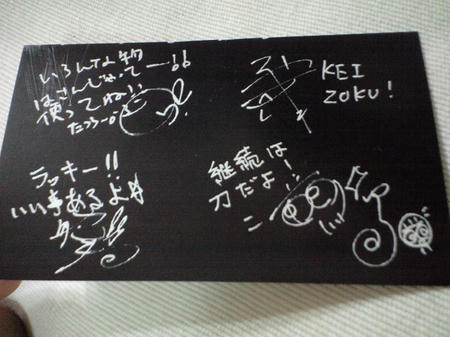 いろんな物
はさんじゃってー!!
使ってね!!
たつろー
KEI
ZOKU!
ラッキー!!
いい事あるよ
継続は
刀だよ!